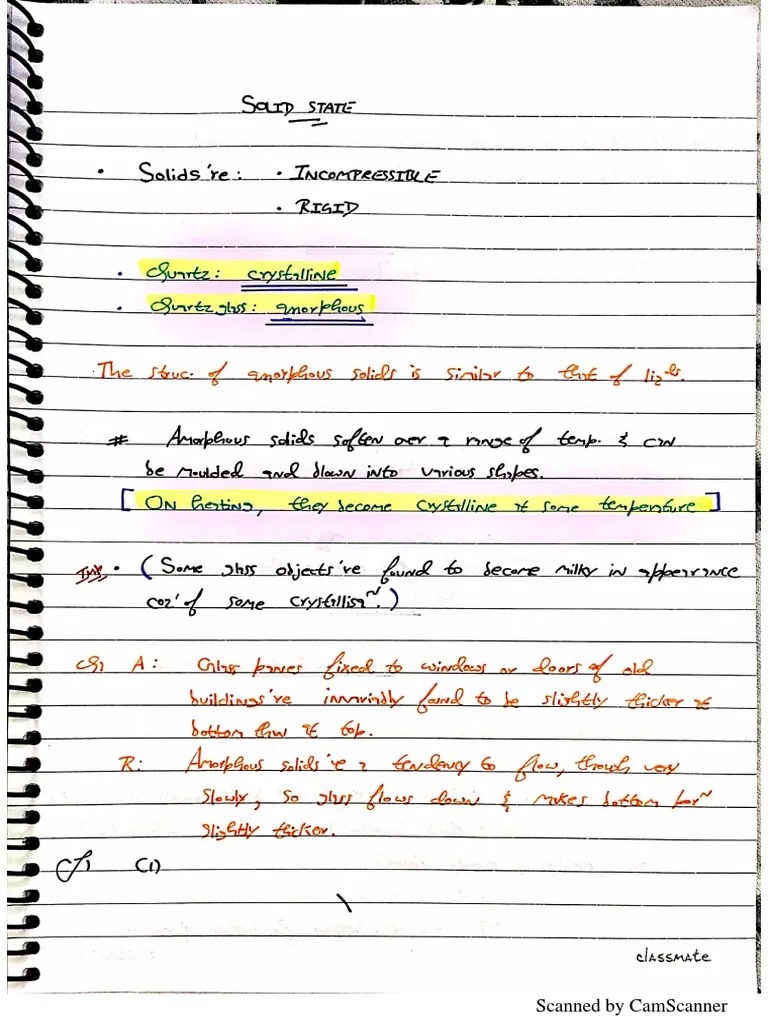 SOLID STATE
• Solids're: • INCOMPRESSIBLE
• RIGID
• Quartz: crystalline
• Quartz glass: amorphous
• The struc. of amorphous solids is similar to that of liqds.
# Amorphous solids soften over a range of temp. & can
be moulded and blown into various shapes.
[ON heating, they become crystalline at some temperature]
Imp • (Some glass objects've found to become milky in appearance
coz' of some crystallisa~.)
Q) A: Glass panes fixed to windows or doors of old
buildings're invariably found to be slightly thicker at
bottom than at top.
R: Amorphous solids 've a tendency to flow, though very
slowly, so glass flows down & makes bottom por~
slightly thicker.
(1)
classmate
Scanned by CamScanner